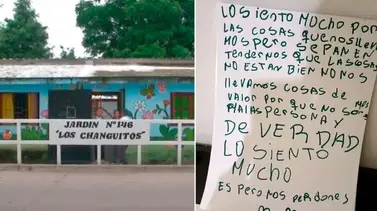 JARDIN Nº 146
"LOS CHANGUITOS"
LO SIENTO MUCHO POR
LAS COSAS QUE NOS LLEVA
MOS PERO SEPAN EN
TENDERNOS QUE LAS COSAS
NO ESTAN BIEN NO NOS
LLEVAMOS COSAS DE
VALOR POR QUE NO SOMOS
MALAS PERSONA Y
DE VERDAD
LO SIENTO
MUCHO
ESPERO NOS PERDONES